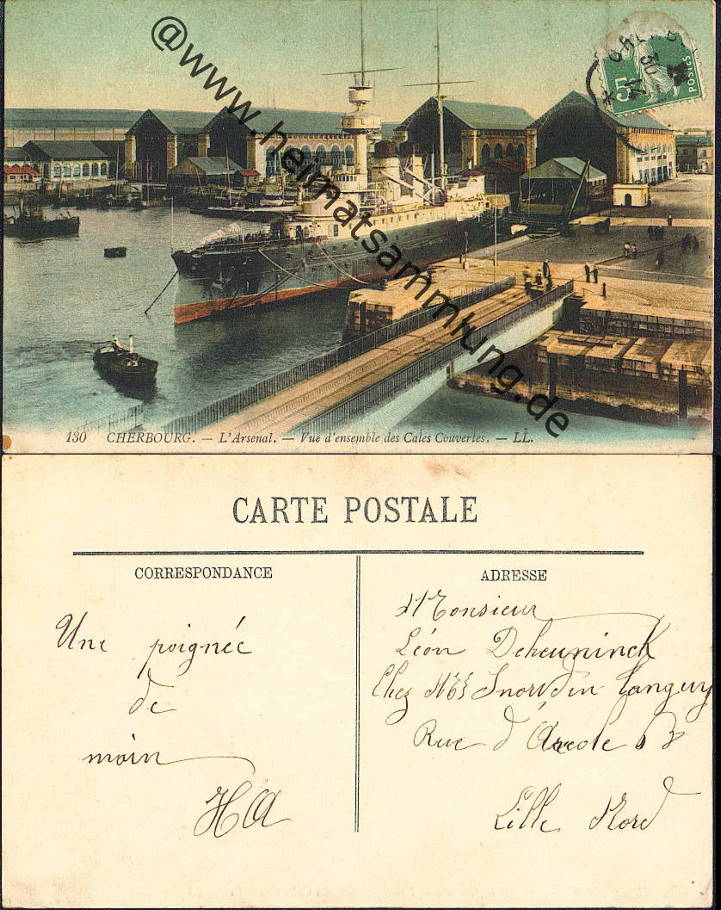 @www.heimatsammlung.de
5c
POSTES
130 CHERBOURG. — L'Arsenal. — Vue d'ensemble des Cales Couvertes. — LL.
CARTE POSTALE
CORRESPONDANCE
Une poignée
de
main
HA
ADRESSE
Monsieur
Léon Deheuninck
Chez
Rue d'Arcole
Lille Nord